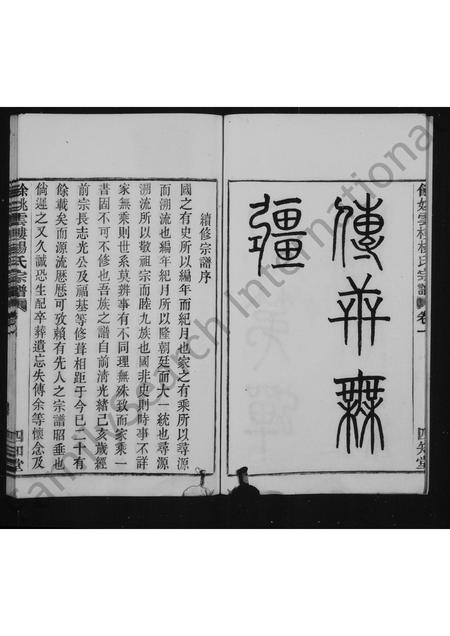 傳并無
疆
四知堂
續修宗譜序
國之有史所以編年而紀月也家之有乘所以尋源
而溯流也編年紀月所以隆朝廷而大一統也尋源
溯流所以敬祖宗而睦九族也國非史則時事不詳
家無乘則世系莫辨事有不同理無殊致而家乘一
書固不可不修也吾族之譜自前清光緒己亥歲經
前宗長志光公及福基等修葺相距于今已二十有
餘載矣而源流歷歷可攷賴有先人之宗譜昭垂也
倘遲之又久誠恐生配卒葬遺忘失傳余等懷念及
餘姚雲樓楊氏宗譜
四知堂